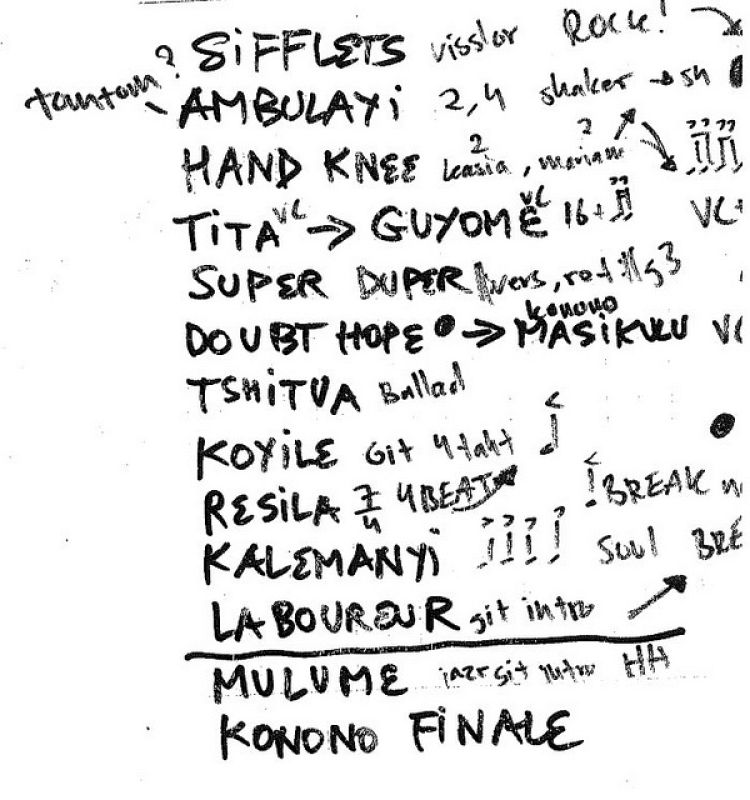 ? SIFFLETS visslor ROCK!
tamtam AMBULAYI 2,4 shaker → SH
HAND KNEE 2 kasia, mariam 2
TITA VC → GUYOMÉ VC 16 + VC
SUPER DUPER vers, ref
DOUBT HOPE → konono MASIKULU VC
TSHITUA Ballad
KOYILE Git 4takt
RESILA 7/4 4BEAT BREAK
KALEMANYI Soul BRE
LABOUREUR git intro
MULUME git intro HH
KONONO FINALE